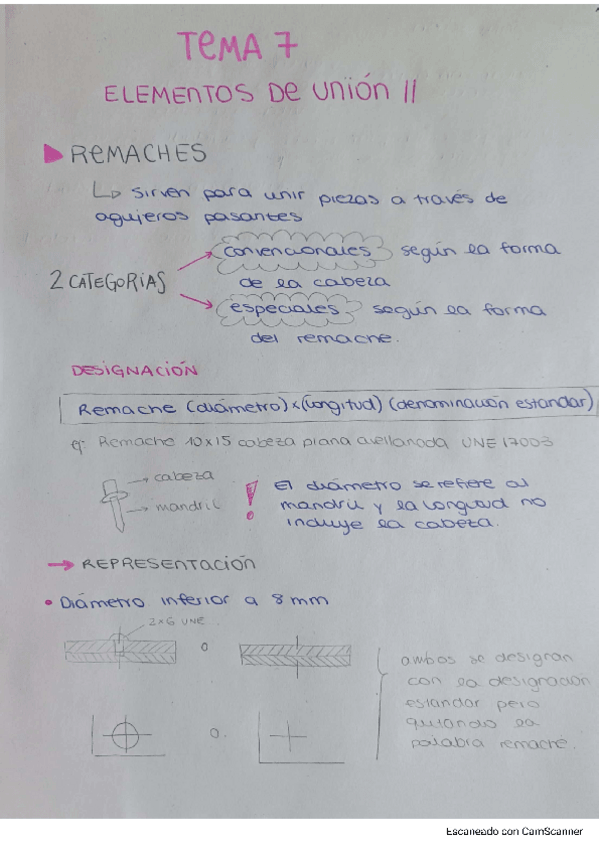 TEMA 7
ELEMENTOS DE UNIÓN II
REMACHES
Sirven para unir piezas a través de
agujeros pasantes
2 CATEGORÍAS
convencionales según la forma
de la cabeza
especiales según la forma
del remache.
DESIGNACIÓN
Remache (diámetro) x (longitud) (denominación estandar)
ej: Remache 10x15 cabeza plana avellanada UNE 17003
cabeza
mandril
! El diámetro se refiere al
mandril y la longitud no
incluye la cabeza.
→ REPRESENTACIÓN
• Diámetro inferior a 8 mm
2x6 UNE
o
ambos se designan
con la designación
estandar pero
quitando la
palabra remache.
o.
Escaneado con CamScanner